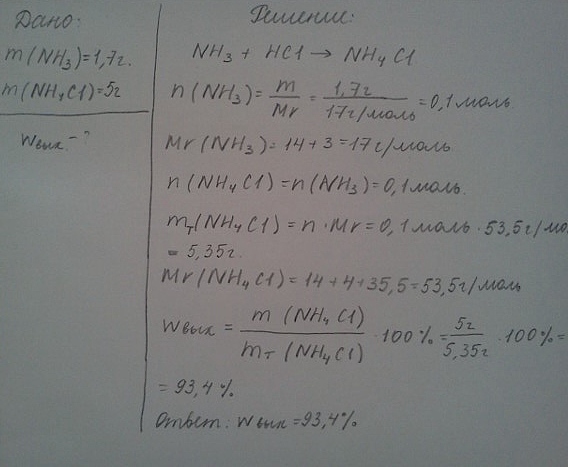 Дано:
m(NH3)=1,7г.
m(NH4Cl)=5г
Wвых-?
Решение:
NH3 + HCl → NH4Cl
n(NH3)= m/Mr = 1,7г/17г/моль =0,1моль
Mr(NH3)=14+3=17г/моль
n(NH4Cl)=n(NH3)=0,1моль.
mт(NH4Cl)=n·Mr=0,1моль·53,5г/мо
= 5,35г.
Mr(NH4Cl)=14+4+35,5=53,5г/моль
Wвых = m (NH4Cl)/mт (NH4Cl) ·100%=5г/5,35г ·100%=
=93,4%
Ответ: Wвых=93,4%